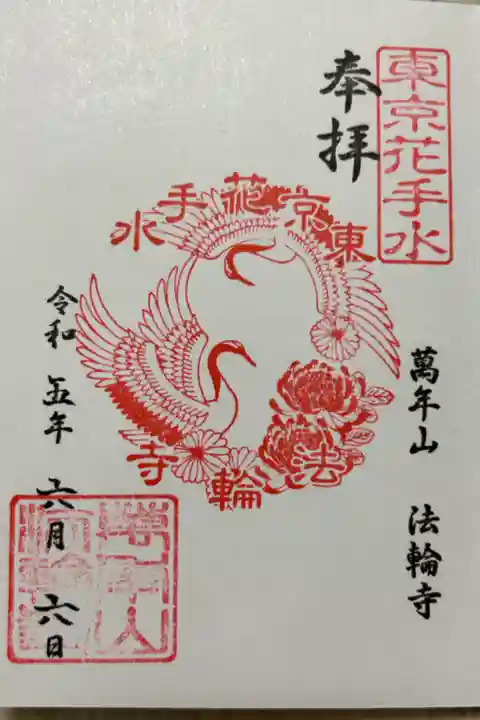 東京花手水
奉拝
東京花手水
法輪寺
萬年山 法輪寺
令和 五年 六月 六日